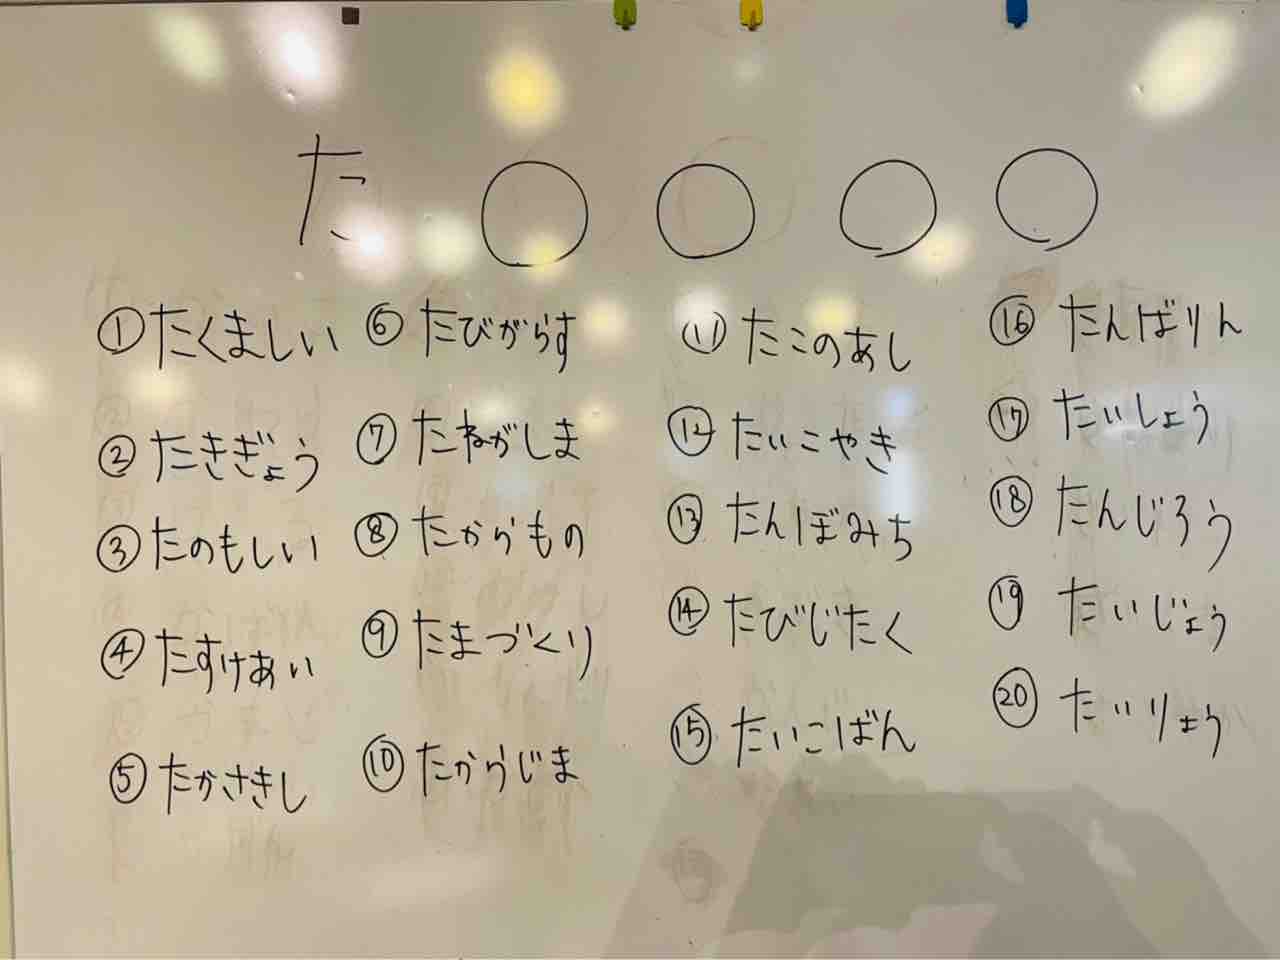 た○○○○
①たくましい
②たきぎょう
③たのもしい
④たすけあい
⑤たかさきし
⑥たびがらす
⑦たねがしま
⑧たからもの
⑨たまづくり
⑩たからじま
⑪たこのあし
⑫たいこやき
⑬たんぼみち
⑭たびじたく
⑮たいこばん
⑯たんばりん
⑰たいしょう
⑱たんじろう
⑲たいじょう
⑳たいりょう